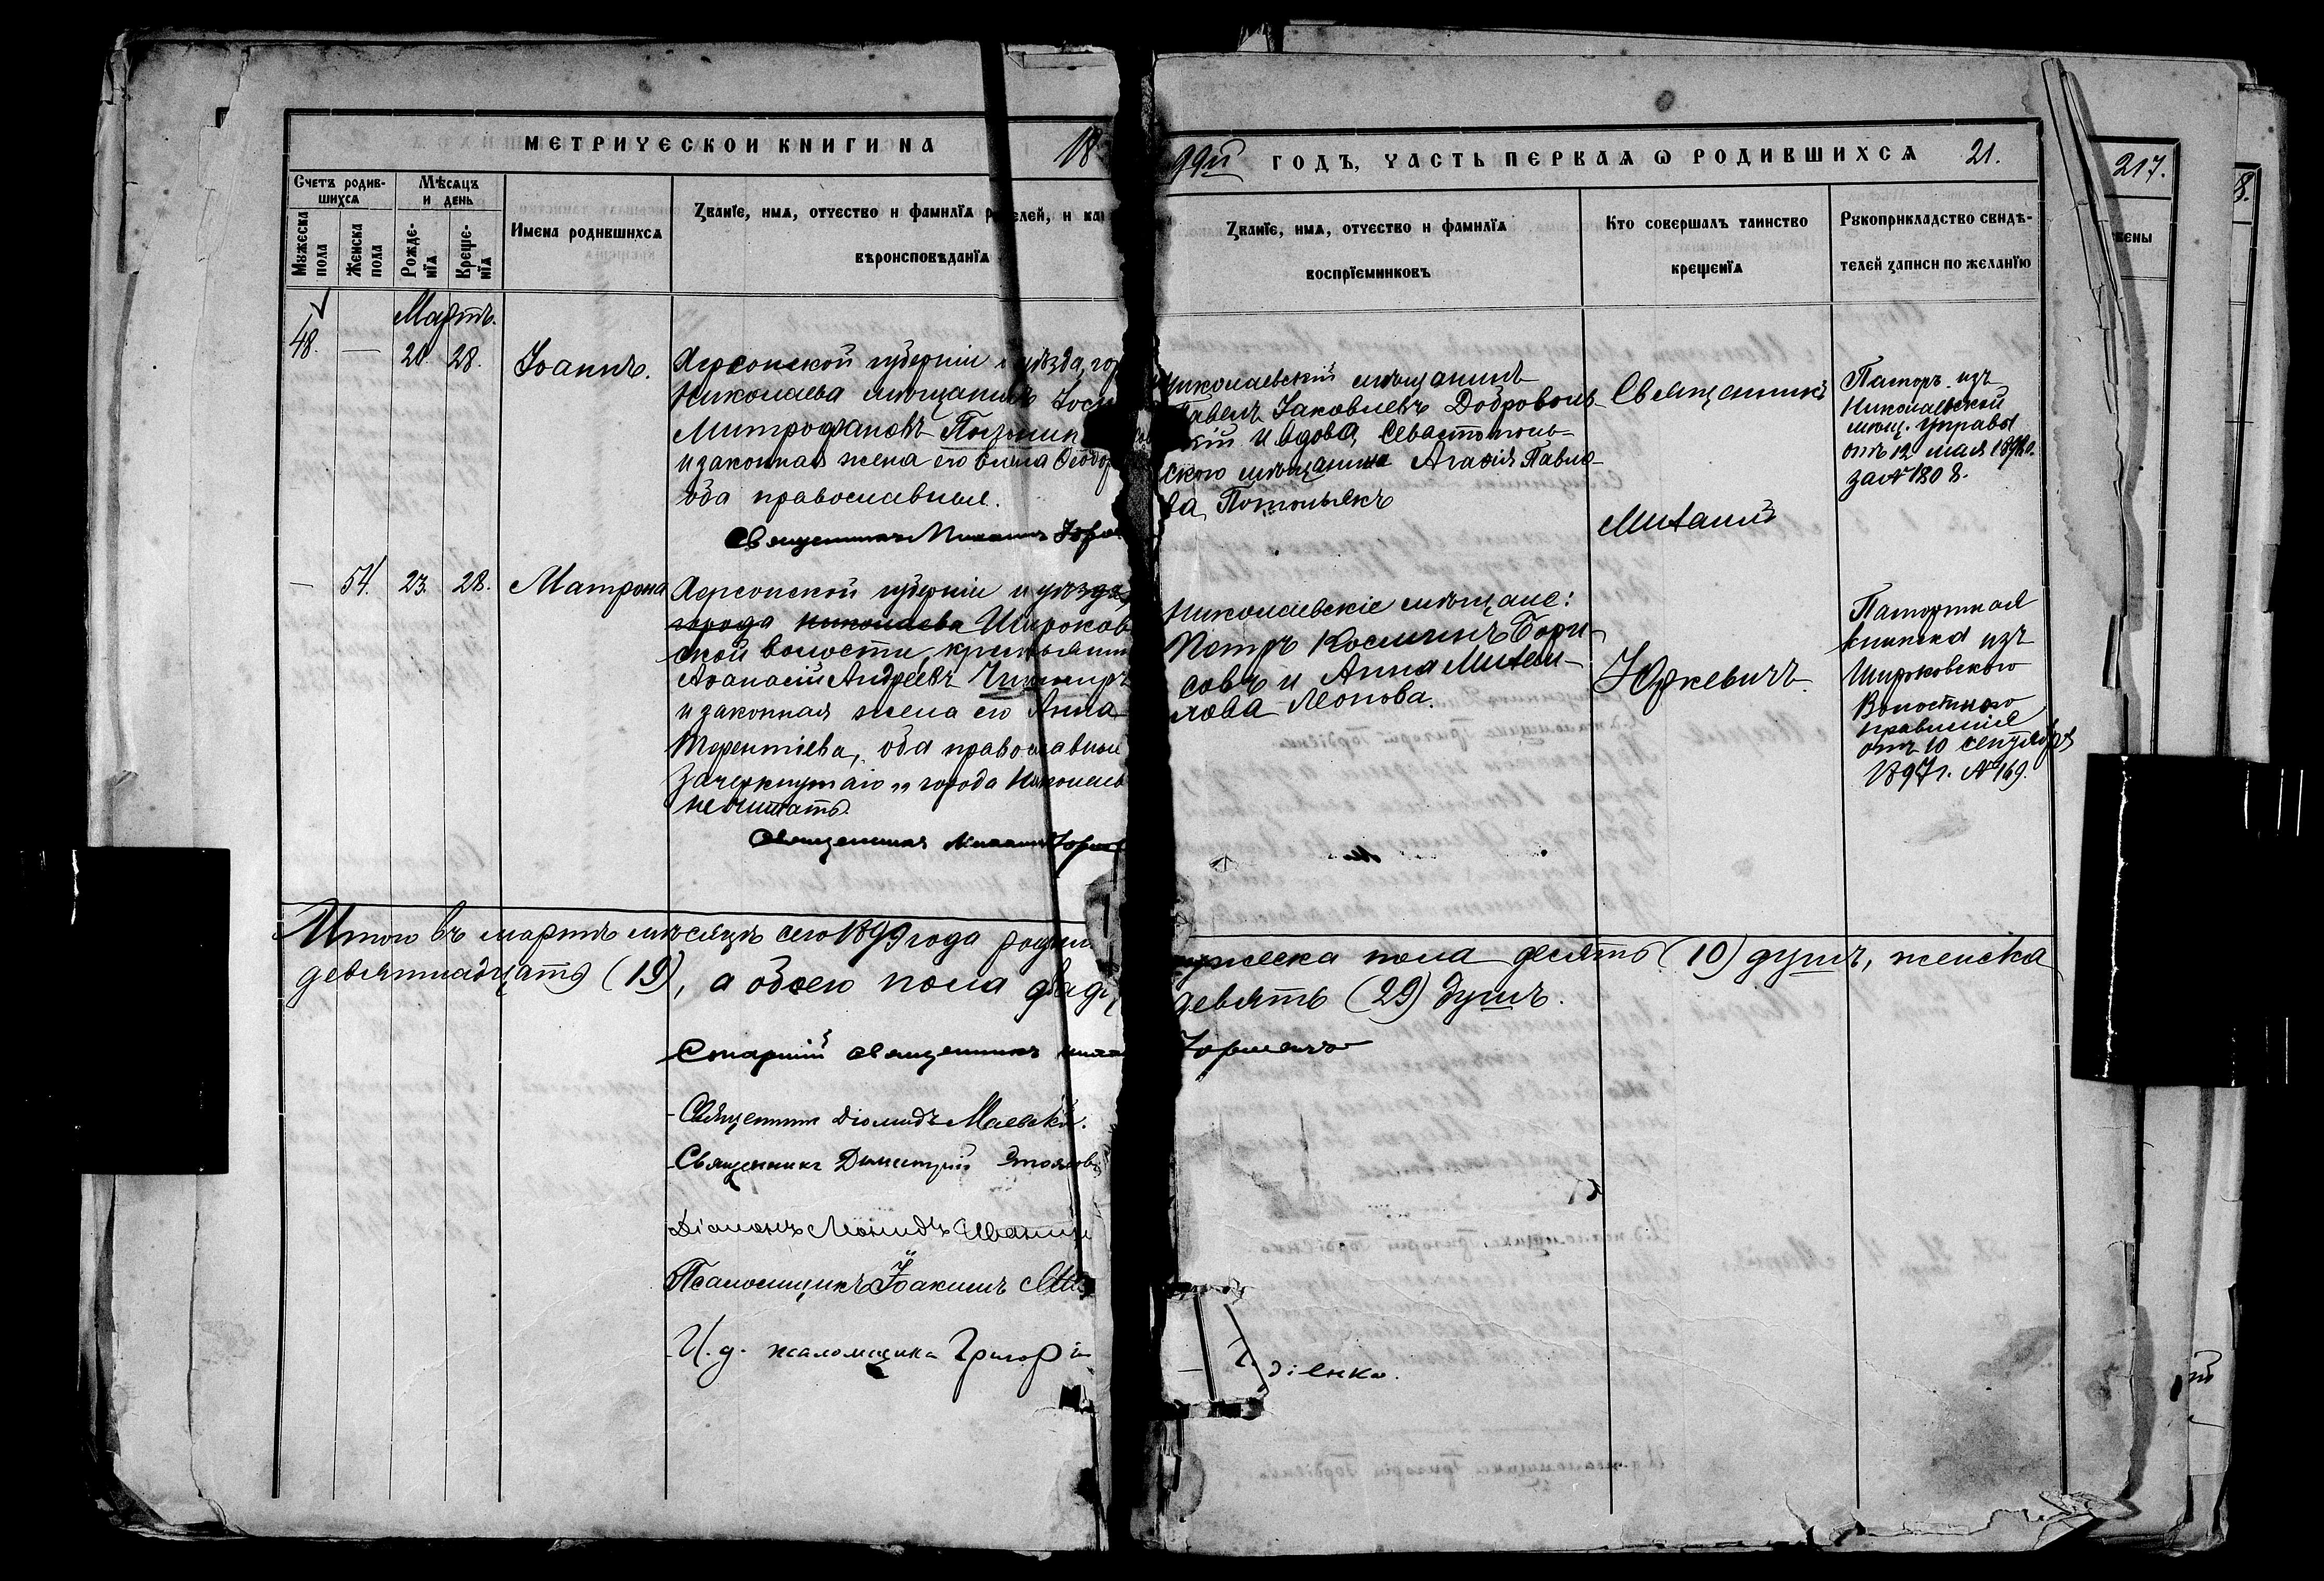 МЕТРИЧЕСКОЙ КНИГИ НА 18
99й ГОДЪ, ЧАСТЬ ПЕРВАЯ Ѡ РОДИВШИХСЯ 21.
217.
Счетъ родив-
шихся
Мѣсяцъ
и день
Мужеска
пола
Женска
пола
Рожде-
нїя
Креще-
нїя
Имена родившихся
Званїе, имя, отчество и фамилїя родителей, и ка
вѣроисповѣданїя
Званїе, имя, отчество и фамилїя
воспрїемниковъ
Кто совершалъ таинство
крещенїя
Рукоприкладство свидѣ-
телей записи по желанїю
Мартъ.
48. — 20. 28. Іоаннъ.
Херсонской губерніи и уѣзда, гор
Николаева мѣщанинъ Іоси
Митрофановъ
и законная жена его Ѳеодор
оба православные.
Священникъ Михаилъ
Николаевскій мѣщанинъ
Павелъ Іаковлевъ Доброволь-
скій и вдова Севастополь-
скаго мѣщанина Агаѳія Павло-
ва
Священникъ
Михаилъ
Юркевичъ.
Паспорт изъ
Николаевской
мѣщ. управы
отъ 12 мая 1898 г.
за № 1808.
— 54. 23. 28. Матрона
Херсонской губерніи и уѣзда,
города Николаева Широков
ской волости, крестьянин
Аѳанасій Андреевъ
и законная жена его Анна
Терентіева, оба православные
Зачеркнутаго „города Николаева
не читать.
Священникъ Михаилъ
Николаевскіе мѣщане:
Петръ Косминъ Бори-
совъ и Анна Михаи-
лова Леонова.
Паспортная
книжка изъ
Широковскаго
Волостного
правленія
отъ 10 сентября
1897 г. № 169.
Итого въ мартѣ мѣсяцѣ сего 1899 года родил
мужеска пола десять (10) душъ, женска
девятнадцать (19), а обоего пола двад
девять (29) душъ.
Старшій священникъ
Священникъ Діомидъ Маевскій.
Священникъ Димитрій
Діаконъ Леонидъ
Псаломщикъ Іоакимъ
И. д. псаломщика Григорій
діенко.